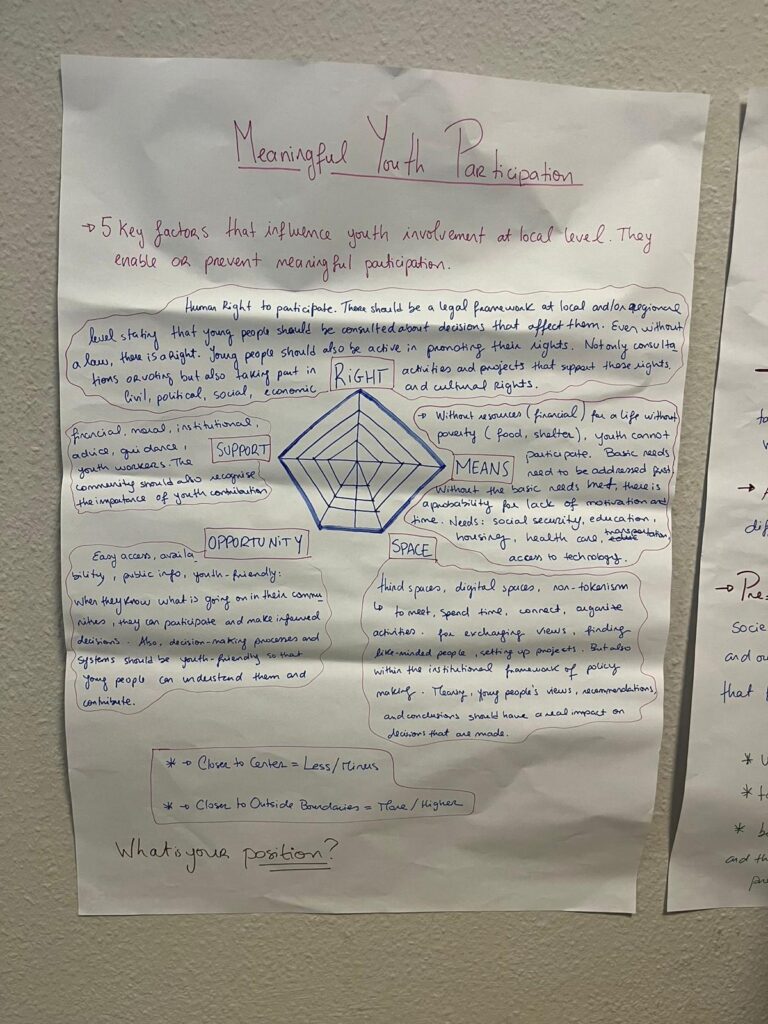 Meaningful Youth Participation
→ 5 Key factors that influence youth involvement at local level. They
enable or prevent meaningful participation.
Human Right to participate. There should be a legal framework at local and/or regional
level stating that young people should be consulted about decisions that affect them. Even without
a law, there is a right. Young people should also be active in promoting their rights. Not only consulta
tions or voting but also taking part in
civil, political, social, economic
RIGHT
activities and projects that support these rights.
and cultural rights.
financial, moral, institutional,
advice, guidance,
youth workers. The
community should also recognise
the importance of youth contribution
SUPPORT
→ Without resources (financial) for a life without
poverty (food, shelter), youth cannot
participate. Basic needs
need to be addressed first.
Without the basic needs met, there is
a probability for lack of motivation and
time. Needs: social security, education,
housing, health care, transportation,
access to technology.
MEANS
OPPORTUNITY
Easy access, availa
bility, public info, youth-friendly:
When they know what is going on in their commu
nities, they can participate and make informed
decisions. Also, decision-making processes and
systems should be youth-friendly so that
young people can understand them and
contribute.
SPACE
third spaces, digital spaces, non-tokenism
↳ to meet, spend time, connect, organize
activities. for exchanging views, finding
like-minded people, setting up projects. But also
within the institutional framework of policy
making. Meaning, young people's views, recommendations,
and conclusions should have a real impact on
decisions that are made.
* → Closer to Center = Less/Minus
* → Closer to Outside Boundaries = More/Higher
What is your position?
→
→
→ Pre
Socie
and ou
that
*
*
*
and th